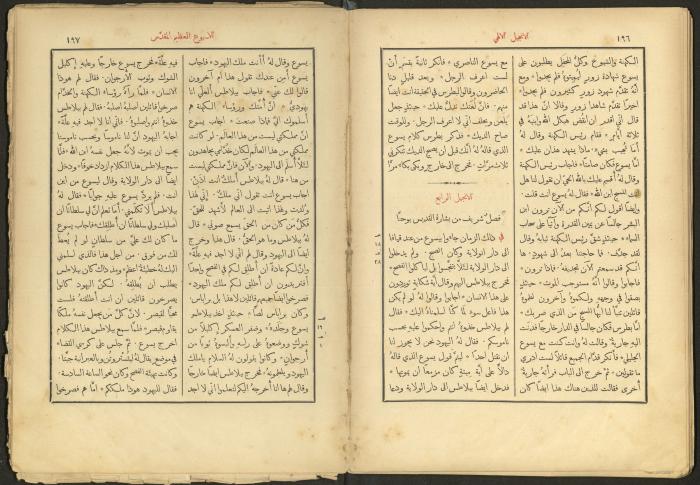 ١٩٦
الانجيل الالهي
الكهنة والشيوخ وكل المحفل يطلبون على
يسوع شهادة زور ليميتوه فلم يجدوا * ومع
انه تقدم شهود زور كثيرون فلم يجدوا *
اخيرا تقدم شاهدا زور وقالا ان هذا قد
قال اني اقدر ان انقض هيكل الله وابنيه في
ثلاثة ايام * فقام رئيس الكهنة وقال له
أما تجيب بشيء. ماذا يشهد هذان عليك *
أما يسوع فكان صامتا * فاجاب رئيس الكهنة
وقال له أقسم عليك بالله الحي ان تقول لنا هل
انت المسيح ابن الله * فقال له يسوع انت قلت.
وايضا اقول لكم انكم من الآن ترون ابن
البشر جالسا عن يمين القدرة وآتيا على سحاب
السماء * حينئذ شق رئيس الكهنة ثيابه وقال
لقد جدف. ما حاجتنا بعد الى شهود. ها
انكم قد سمعتم الآن تجديفه * فماذا ترون *
فاجابوا وقالوا انه مستوجب الموت * حينئذ
بصقوا في وجهه ولكموه وآخرون لطموه
قائلين تنبأ لنا ايها المسيح من الذي ضربك *
أما بطرس فكان جالسا في الدار خارجا فدنت
اليه جارية وقالت له وانت كنت مع يسوع
الجليلي * فأنكر قدام الجميع قائلا لست ادري
ما تقولين * ثم خرج الى الباب فرأته جارية
اخرى فقالت للذين هناك هذا ايضا كان
مع يسوع الناصري * فانكر ثانية بقسم أن
لست اعرف الرجل * وبعد قليل دنا
الحاضرون وقالوا لبطرس في الحقيقة انت ايضا
منهم. فان لغتك تدل عليك * حينئذ جعل
يلعن ويحلف اني لا اعرف الرجل. وللوقت
صاح الديك * فذكر بطرس كلام يسوع
الذي قاله له انك قبل ان يصيح الديك تنكرني
ثلاث مرات. فخرج الى خارج وبكى بكاء مرا
الانجيل الرابع
فصل شريف من بشارة القديس يوحنا
في ذلك الزمان جاءوا بيسوع من عند قيافا
الى دار الولاية وكان الصبح. ولم يدخلوا
الى دار الولاية لئلا يتنجسوا بل ليأكلوا الفصح *
فخرج بيلاطس اليهم وقال أية شكاية توردون
على هذا الانسان * اجابوا وقالوا له لو لم يكن
هذا فاعل سوء لما كنا اسلمناه اليك * فقال
لهم بيلاطس خذوه انتم واحكموا عليه بحسب
ناموسكم. فقال له اليهود نحن لا يجوز لنا
ان نقتل أحدا * ليتم قول يسوع الذي قاله
دالا على أية ميتة كان مزمعا ان يموتها *
فدخل ايضا بيلاطس الى دار الولاية ودعا
١٩٧
الاسبوع العظيم المقدس
يسوع وقال له أأنت ملك اليهود * فاجاب
يسوع أمن عندك تقول هذا ام آخرون
قالوا لك عني * فاجاب بيلاطس ألعلي انا
يهودي. ان أمتك ورؤساء الكهنة هم
أسلموك الي فماذا صنعت * اجاب يسوع
ان مملكتي ليست من هذا العالم. لو كانت
مملكتي من هذا العالم لكان خدامي يجاهدون
لئلا أسلم الى اليهود. والآن فان مملكتي ليست
من هنا * قال له بيلاطس أملك انت اذن.
اجاب يسوع انت تقول اني ملك. اني لهذا
ولدت ولهذا اتيت الى العالم لأشهد للحق.
فكل من كان من الحق يسمع صوتي * قال
له بيلاطس وما هو الحق. قال هذا وخرج
ايضا الى اليهود وقال لهم اني لا اجد فيه علة *
وان لكم عادة ان أطلق لكم في الفصح واحدا
أفتريدون ان أطلق لكم ملك اليهود *
فصرخوا ايضا جميعهم قائلين لا هذا بل براباس.
وكان براباس لصا * حينئذ اخذ بيلاطس
يسوع وجلده * وضفر العسكر اكليلا من
شوك ووضعوه على رأسه وألبسوه ثوبا من
أرجوان * وكانوا يقولون له السلام يا ملك
اليهود ويلطمونه * فخرج بيلاطس ايضا خارجا
وقال لهم ها انا أخرجه اليكم لتعلموا اني لا اجد
فيه علة * فخرج يسوع خارجا وعليه إكليل
الشوك وثوب الارجوان. فقال لهم هوذا
الانسان * فلما رآه رؤساء الكهنة والخدام
صرخوا قائلين اصلبه اصلبه. فقال لهم بيلاطس
خذوه انتم واصلبوه. فاني انا لا اجد فيه علة *
اجابه اليهود ان لنا ناموسا وبحسب ناموسنا
يجب ان يموت لانه جعل نفسه ابن الله * فلما
سمع بيلاطس هذا الكلام ازداد خوفا * ودخل
ايضا الى دار الولاية وقال ليسوع من اين
انت. فلم يرد يسوع عليه جوابا * فقال له
بيلاطس ألا تكلمني. أما تعلم ان لي سلطانا ان
أصلبك ولي سلطانا ان أطلقك * فاجاب يسوع
ما كان لك علي من سلطان لو لم يعط
لك من فوق. من اجل هذا فالذي اسلمني
اليك له خطيئة اعظم * ومنذ ذلك كان بيلاطس
يطلب ان يطلقه. لكن اليهود كانوا
يصرخون قائلين ان انت أطلقته فلست
محبا لقيصر. لان كل من يجعل نفسه ملكا
يقاوم قيصر * فلما سمع بيلاطس هذا الكلام
اخرج يسوع. ثم جلس على كرسي القضاء
في موضع يقال له ليثستروتن وبالعبرانية جبثا.
وكانت تهيئة الفصح وكان نحو الساعة السادسة.
فقال لليهود هوذا ملككم * أما هم فصرخوا